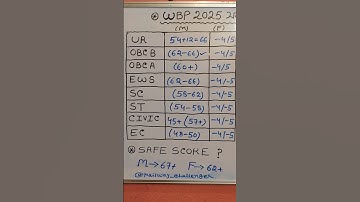 ⊛ WBP 2025
(M) (F)
UR 54+12=66 -4/5
OBC B (62-66)✓ -4/5
OBC A (60+) -4/5
EWS (62-66) -4/-5
SC (58-62) -4/-5
ST (54-58) -4/-5
CIVIC 45+(57+) -4/-5
EC (48-50) -4/-5
⊛ SAFE SCORE ?
M→67+ F→62+
@railway_challenger